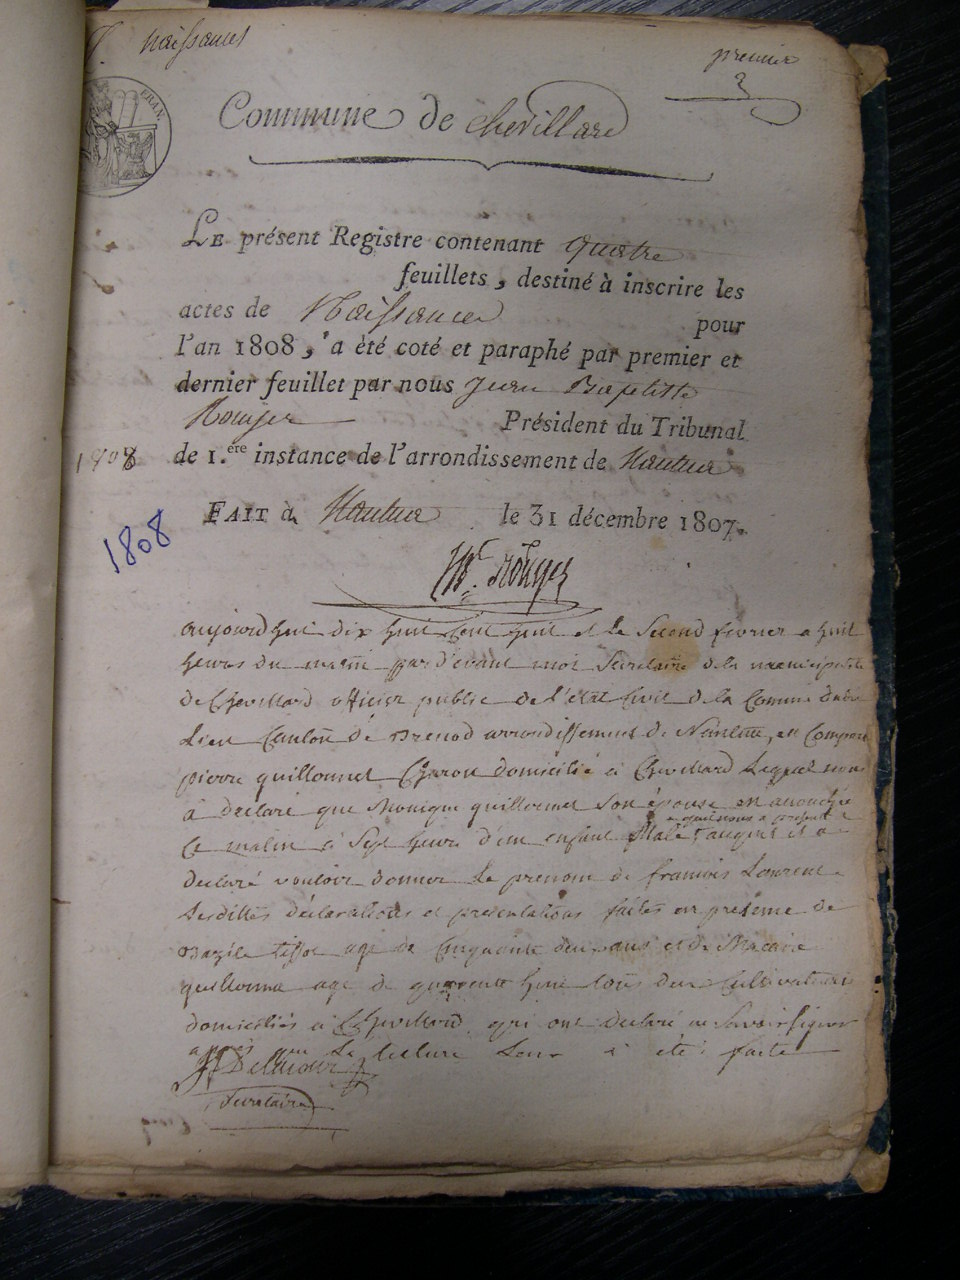 naissances
premier
ERAN
Commune de chevillard
LE présent Registre contenant quatre
feuillets, destiné à inscrire les
actes de Naissances pour
l'an 1808, a été coté et paraphé par premier et
dernier feuillet par nous Jean Baptiste
Rouyer Président du Tribunal
de 1.ère instance de l'arrondissement de Nantua
1808
FAIT à Nantua le 31 décembre 1807.
1808
Rouyer
aujourd'hui dix huit Cent huit et le Second fevrier a huit
heures du matin par devant moi Secretaire de la municipalité
de Chevillard officier public de l'état Civil de la Commune dudit
Lieu Canton de Brenod arrondissement de Nantua, est Comparu
pierre guillermet Charon domicilié à Chevillard Lequel nous
à declaré que Monique guillermet Son épouse est accouchée
Ce matin à Sept heures d'un enfant Male, auquel il a
et qu'il nous a présenté
declaré vouloir donner Le prenom de francois Laurent
Lesdittes déclarations et presentations faites en presence de
Bazile tissot agé de Cinquante deux ans et de Macaire
guillermet agé de quarante huit tous deux Cultivateurs
domiciliés à Chevillard qui ont declaré ne Savoir Signer
après que La lecture Leur à été faite
Delacour
Secretaire